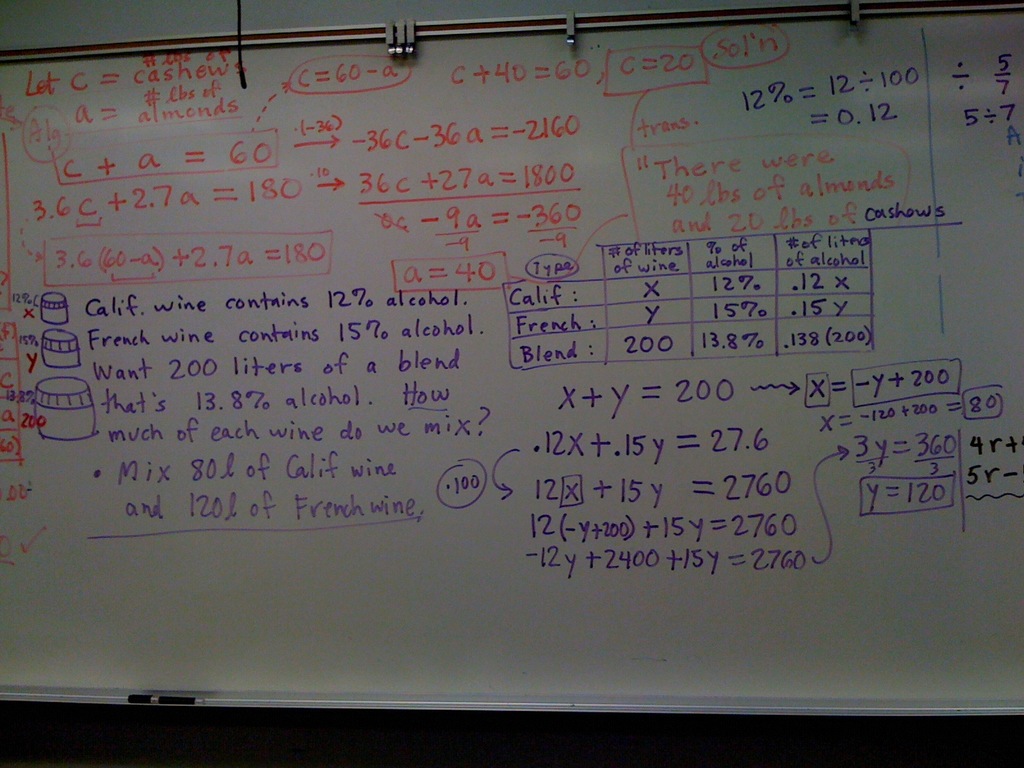 Let c = # lbs of cashews
a = # lbs of almonds
Alg
c + a = 60
3.6c + 2.7a = 180
3.6(60-a) + 2.7a = 180
c = 60 - a
·(-36)
-36c - 36a = -2160
·10
36c + 27a = 1800
0c - 9a = -360
-9 -9
a = 40
c + 40 = 60, c = 20
Sol'n
trans.
"There were
40 lbs of almonds
and 20 lbs of cashews
12% = 12 ÷ 100
= 0.12
÷ 5/7
5÷7
12%
x
15%
y
13.8%
200
Calif. wine contains 12% alcohol.
French wine contains 15% alcohol.
Want 200 liters of a blend
that's 13.8% alcohol. How
much of each wine do we mix?
• Mix 80l of Calif wine
and 120l of French wine.
Type # of liters of wine % of alcohol # of liters of alcohol
Calif: x 12% .12 x
French: y 15% .15 y
Blend: 200 13.8% .138(200)
x + y = 200
x = -y + 200
x = -120 + 200 = 80
.12x + .15y = 27.6
·100
12x + 15y = 2760
12(-y+200) + 15y = 2760
-12y + 2400 + 15y = 2760
3y = 360
3 3
y = 120
4r +
5r -